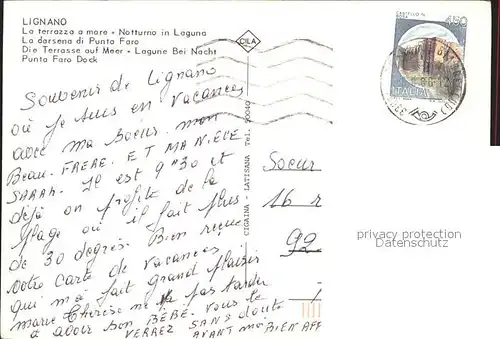 LIGNANO
La terrazza a mare - Notturno in Laguna
La darsena di Punta Faro
Die Terrasse auf Meer - Lagune Bei Nacht
Punta Faro Dock
CILA
450
CASTELLO DI
ITALIA
CIGAINA - LATISANA Tel. 50040
Souvenir de Lignano
où je suis en vacances
avec ma Soeur. mon
Beau. FRERE. ET MA NIECE
SARAH. Il est 9 H 30 et
déjà on profite de la
plage où il fait plus
de 30 degrés. Bien reçue
votre carte de vacances
qui m'a fait grand plaisir
marie Thérèse ne va pas tarder
à avoir son BÉBÉ. vous le
VERREZ SANS doute
AVANT moi BIEN AFF
Soeur
16 r
92
privacy protection
Datenschutz